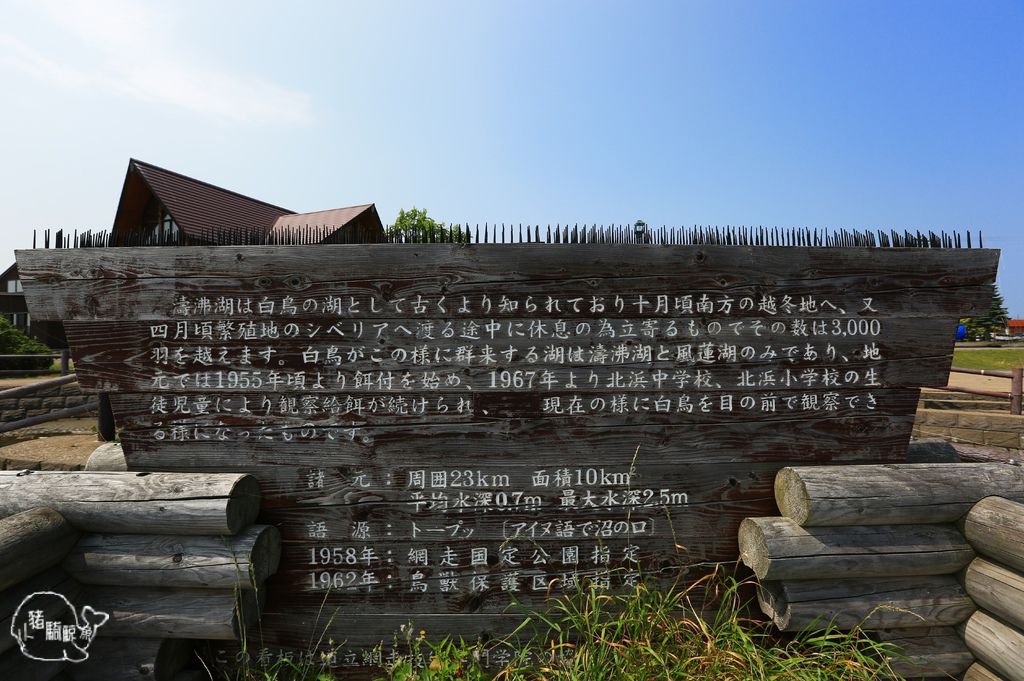 濤沸湖は白鳥の湖として古くより知られており十月頃南方の越冬地へ、又
四月頃繁殖地のシベリアへ渡る途中に休息の為立寄るものでその数は3,000
羽を越えます。白鳥がこの様に群来する湖は濤沸湖と風蓮湖のみであり、地
元では1955年頃より餌付を始め、1967年より北浜中学校、北浜小学校の生
徒児童により観察給餌が続けられ、 現在の様に白鳥を目の前で観察でき
る様になったものです。
諸 元 : 周囲23km 面積10km
平均水深0.7m 最大水深2.5m
語 源 : トープッ〔アイヌ語で沼の口〕
1958年: 網走国定公園指定
1962年: 鳥獣保護区域指定
この看板は
猪騎鯨